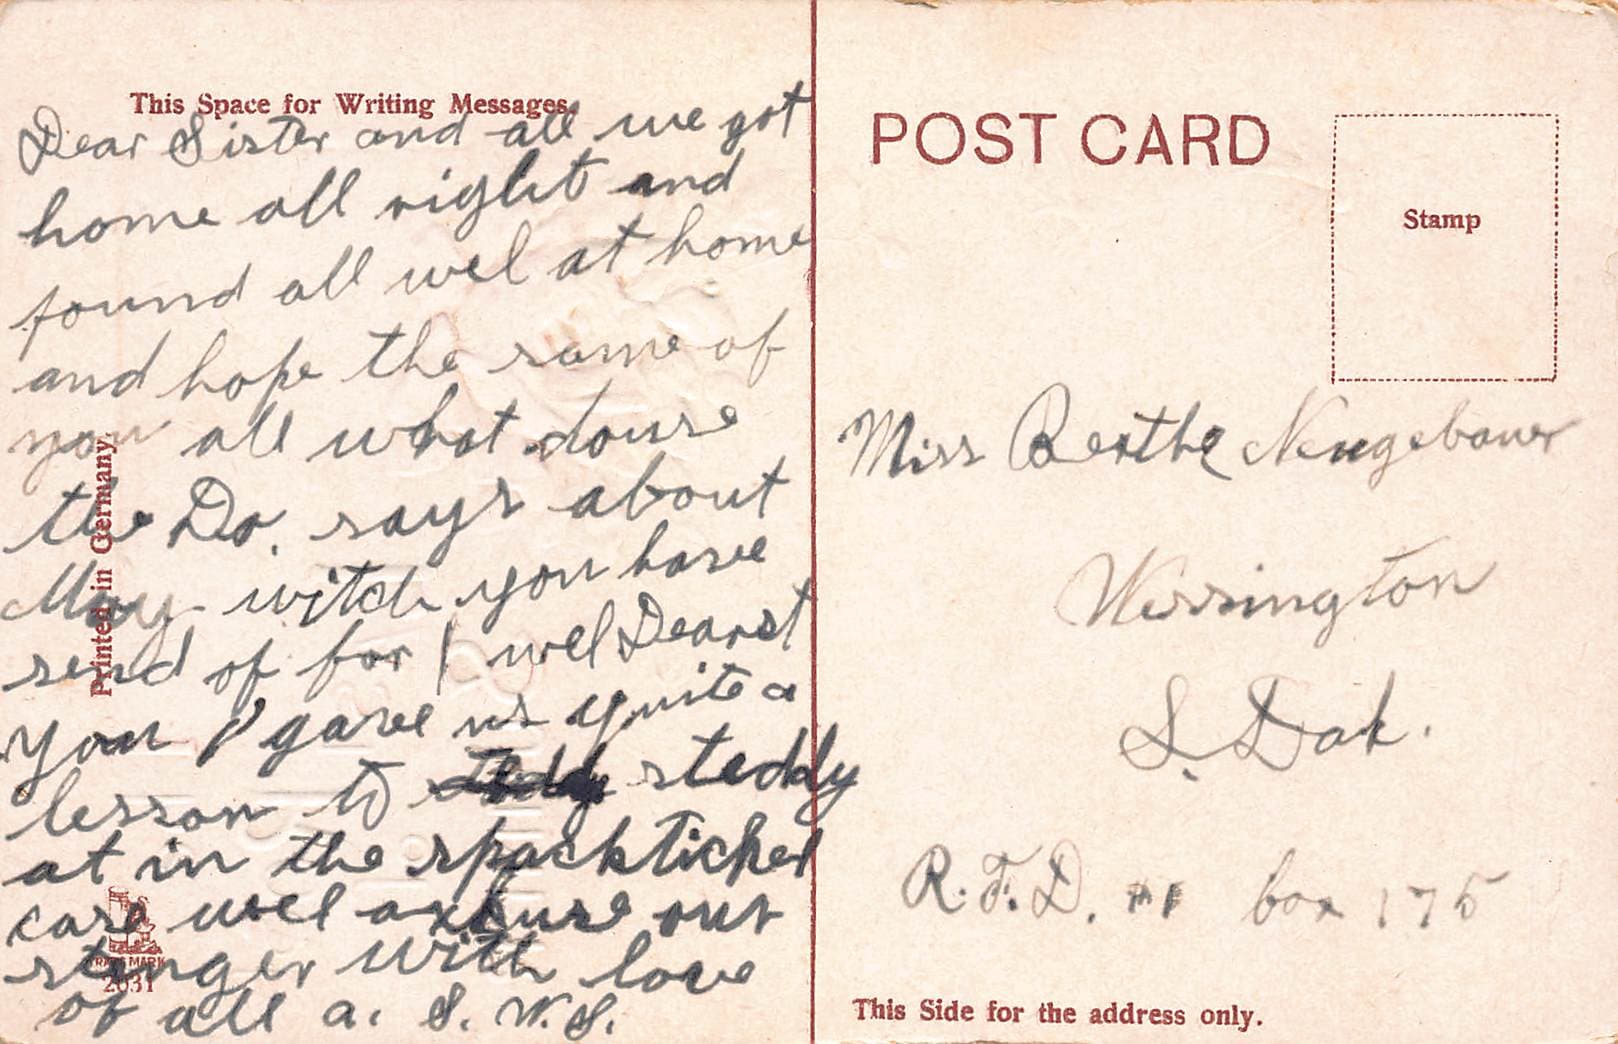 This Space for Writing Messages.
Dear Sister and all we got
home all right and
found all wel at home
and hope the same of
you all what douse
the Dr. says about
May witch you have
send of for I wel Dearst
you gave us quite a
lesson to steddy
at in the spackticher
care wel axkuse our
stinger with love
of all a. S. W. S.
Printed in Germany.
TRADE MARK
2031
POST CARD
Stamp
Miss Berthe Neugebauer
Wessington
S. Dak.
R.F.D. #1 box 175
This Side for the address only.